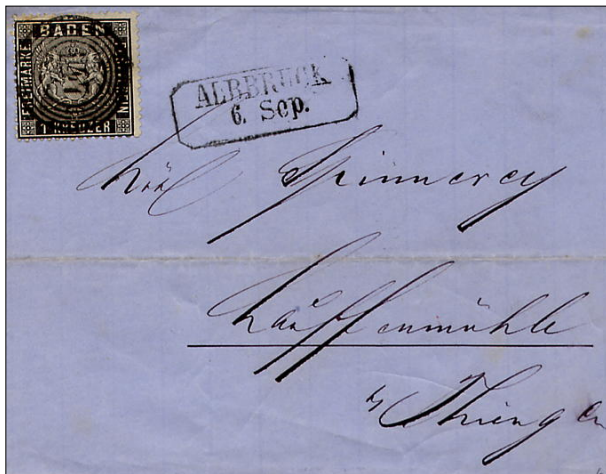 BADEN
FREIMARKE
1 KREUZER
ALBBRUCK
6. Sep.
Spinnerey
Lauffenmühle
Thiengen